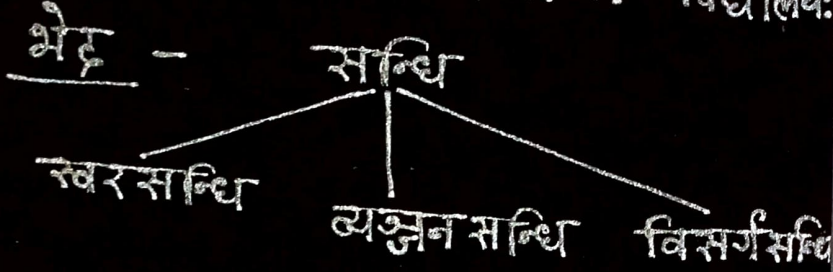 भेद -
सन्धि
स्वरसन्धि
व्यञ्जन सन्धि विसर्गसन्धि